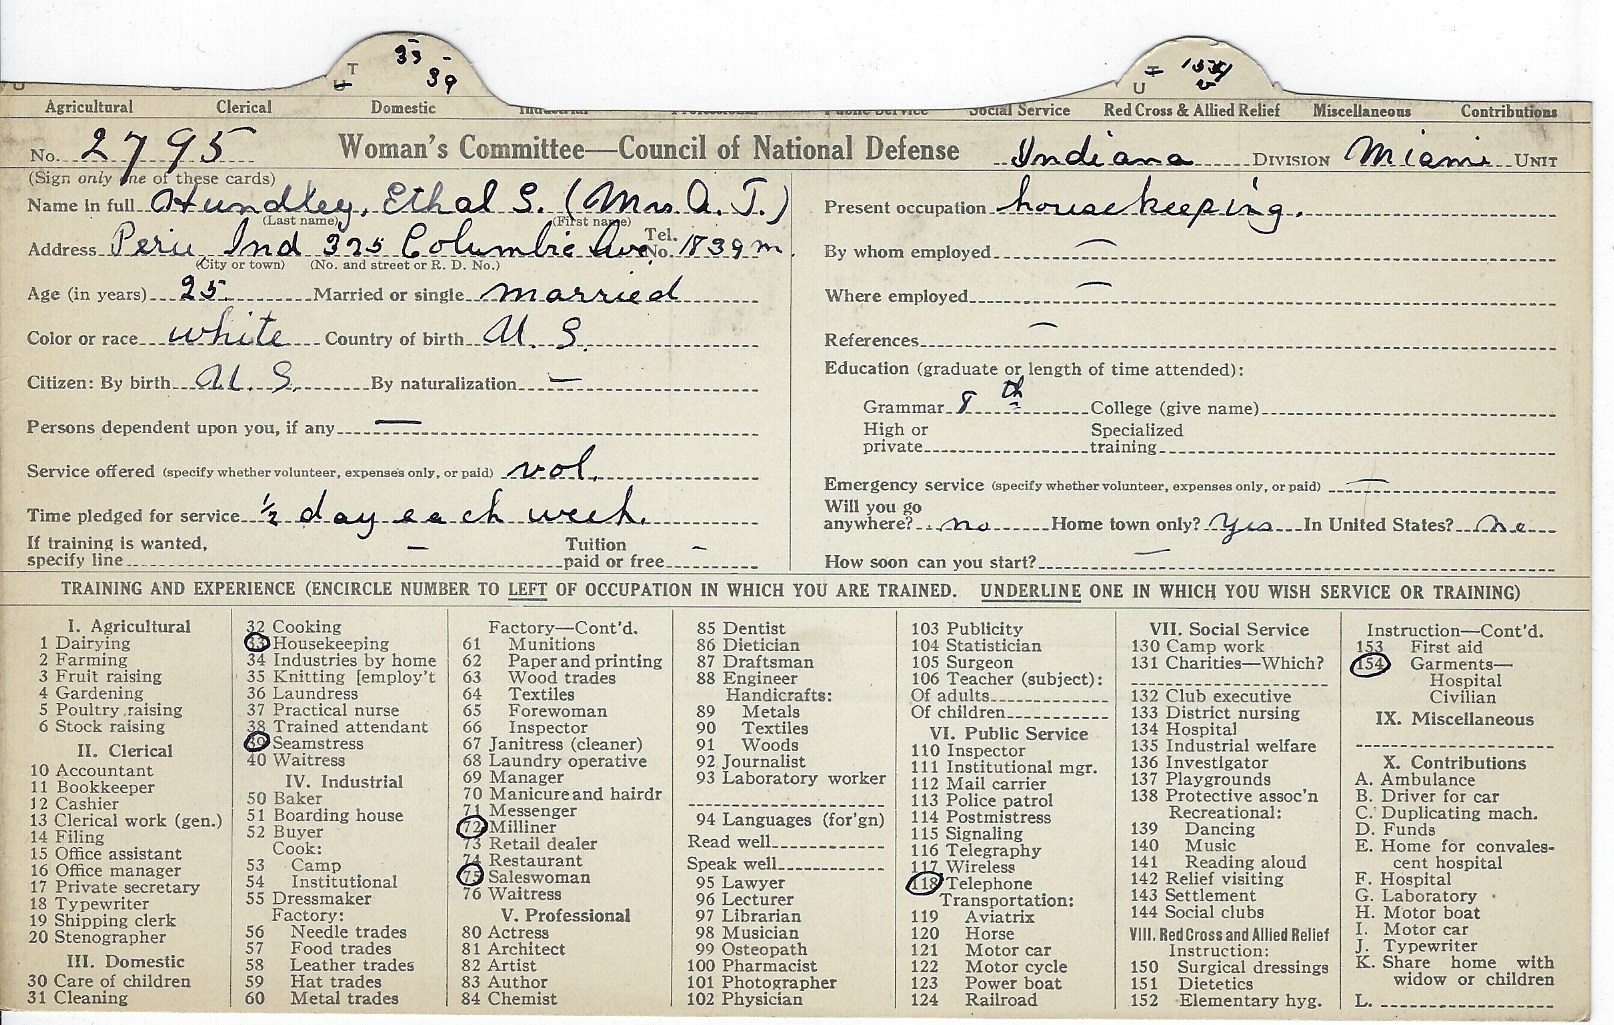 T 33- 39
U
I 154
U V
Agricultural Clerical Domestic Industrial Professional Public Service Social Service Red Cross & Allied Relief Miscellaneous Contributions
No. 2795 Woman's Committee—Council of National Defense Indiana DIVISION Miami UNIT
(Sign only one of these cards)
Name in full Hundley, Ethal S. (Mrs. A. T.)
(Last name) (First name)
Address Peru, Ind 325 Columbie Ave Tel. No. 1839 m.
(City or town) (No. and street or R. D. No.)
Age (in years) 25. Married or single married
Color or race white Country of birth U. S.
Citizen: By birth U. S. By naturalization —
Persons dependent upon you, if any —
Service offered (specify whether volunteer, expenses only, or paid) vol.
Time pledged for service ½ day each week.
If training is wanted, specify line — Tuition paid or free -
Present occupation housekeeping.
By whom employed —
Where employed —
References —
Education (graduate or length of time attended):
Grammar 8th College (give name)
High or private Specialized training
Emergency service (specify whether volunteer, expenses only, or paid) —
Will you go anywhere? no Home town only? Yes In United States? no
How soon can you start? —
TRAINING AND EXPERIENCE (ENCIRCLE NUMBER TO LEFT OF OCCUPATION IN WHICH YOU ARE TRAINED. UNDERLINE ONE IN WHICH YOU WISH SERVICE OR TRAINING)
I. Agricultural
1 Dairying
2 Farming
3 Fruit raising
4 Gardening
5 Poultry raising
6 Stock raising
II. Clerical
10 Accountant
11 Bookkeeper
12 Cashier
13 Clerical work (gen.)
14 Filing
15 Office assistant
16 Office manager
17 Private secretary
18 Typewriter
19 Shipping clerk
20 Stenographer
III. Domestic
30 Care of children
31 Cleaning
32 Cooking
33 Housekeeping
34 Industries by home
35 Knitting [employ't
36 Laundress
37 Practical nurse
38 Trained attendant
39 Seamstress
40 Waitress
IV. Industrial
50 Baker
51 Boarding house
52 Buyer
Cook:
53 Camp
54 Institutional
55 Dressmaker
Factory:
56 Needle trades
57 Food trades
58 Leather trades
59 Hat trades
60 Metal trades
Factory—Cont'd.
61 Munitions
62 Paper and printing
63 Wood trades
64 Textiles
65 Forewoman
66 Inspector
67 Janitress (cleaner)
68 Laundry operative
69 Manager
70 Manicure and hairdr
71 Messenger
72 Milliner
73 Retail dealer
74 Restaurant
75 Saleswoman
76 Waitress
V. Professional
80 Actress
81 Architect
82 Artist
83 Author
84 Chemist
85 Dentist
86 Dietician
87 Draftsman
88 Engineer
Handicrafts:
89 Metals
90 Textiles
91 Woods
92 Journalist
93 Laboratory worker
94 Languages (for'gn)
Read well
Speak well
95 Lawyer
96 Lecturer
97 Librarian
98 Musician
99 Osteopath
100 Pharmacist
101 Photographer
102 Physician
103 Publicity
104 Statistician
105 Surgeon
106 Teacher (subject):
Of adults
Of children
VI. Public Service
110 Inspector
111 Institutional mgr.
112 Mail carrier
113 Police patrol
114 Postmistress
115 Signaling
116 Telegraphy
117 Wireless
118 Telephone
Transportation:
119 Aviatrix
120 Horse
121 Motor car
122 Motor cycle
123 Power boat
124 Railroad
VII. Social Service
130 Camp work
131 Charities—Which?
132 Club executive
133 District nursing
134 Hospital
135 Industrial welfare
136 Investigator
137 Playgrounds
138 Protective assoc'n
Recreational:
139 Dancing
140 Music
141 Reading aloud
142 Relief visiting
143 Settlement
144 Social clubs
VIII. Red Cross and Allied Relief
Instruction:
150 Surgical dressings
151 Dietetics
152 Elementary hyg.
Instruction—Cont'd.
153 First aid
154 Garments—
Hospital
Civilian
IX. Miscellaneous
X. Contributions
A. Ambulance
B. Driver for car
C. Duplicating mach.
D. Funds
E. Home for convales-
cent hospital
F. Hospital
G. Laboratory
H. Motor boat
I. Motor car
J. Typewriter
K. Share home with
widow or children
L.